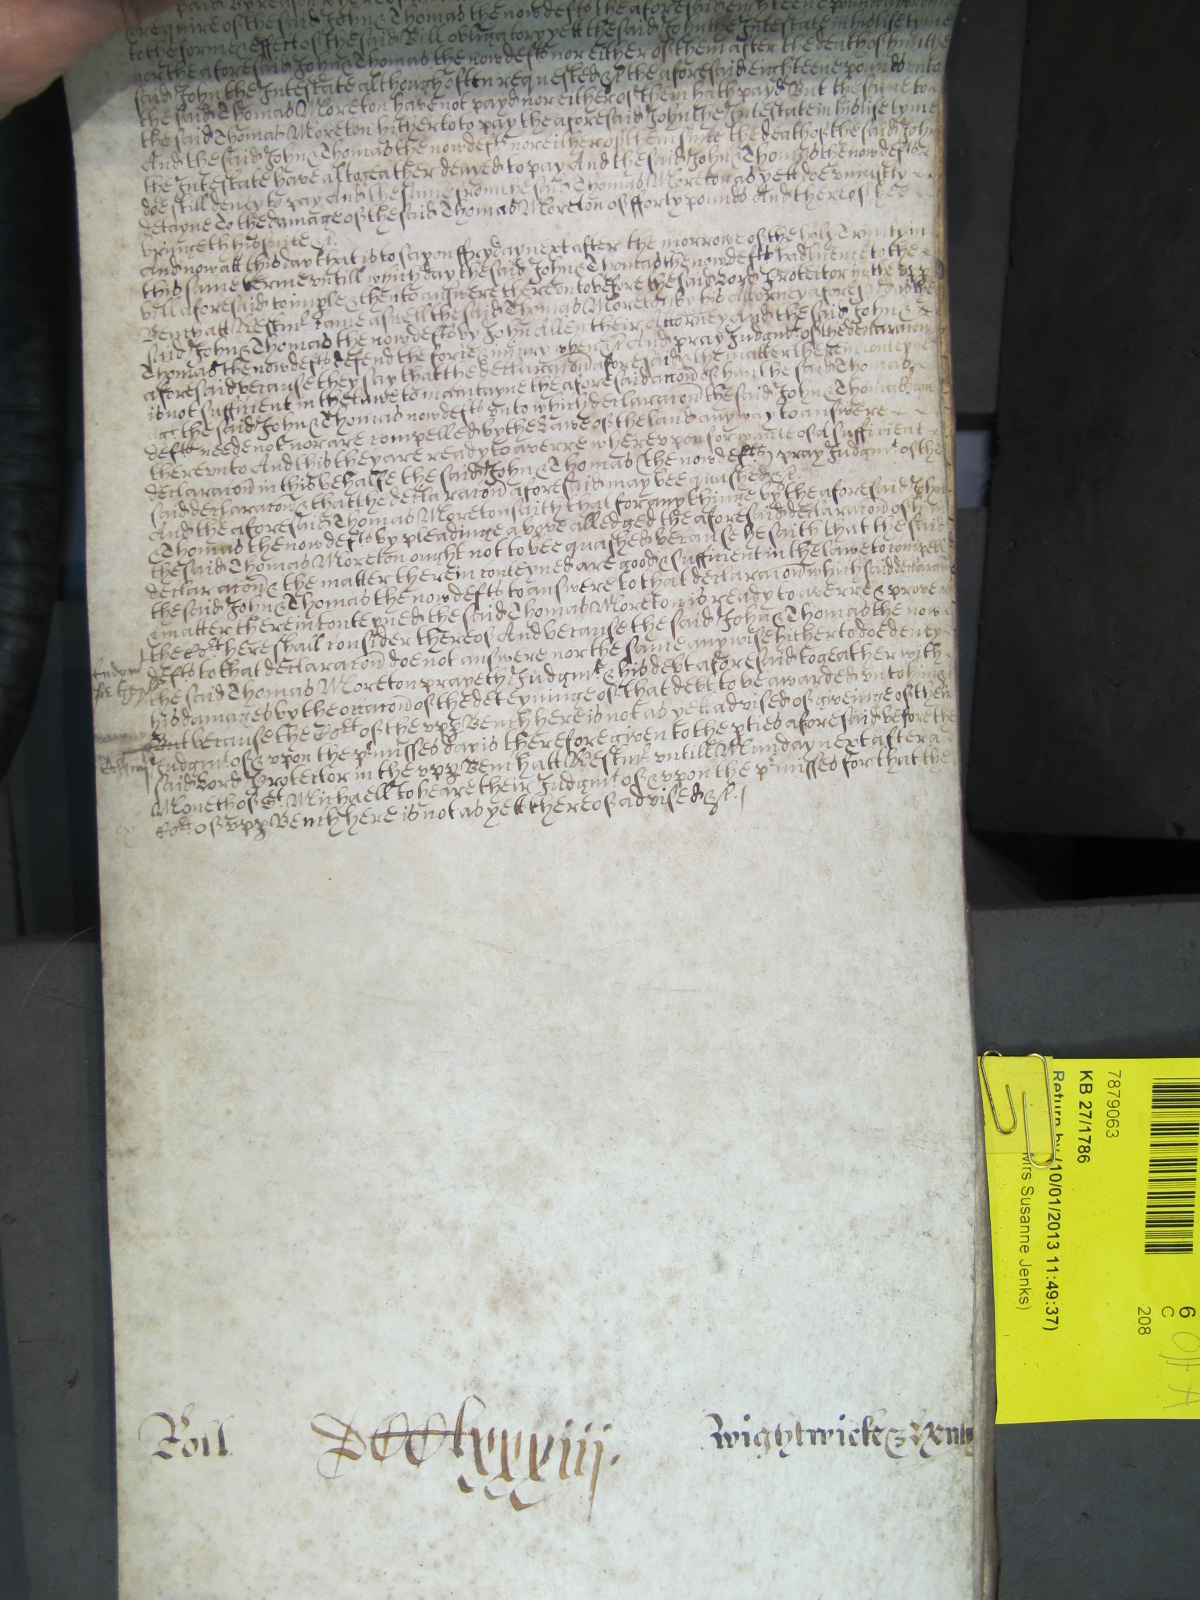 require of the said John & Thomas the now defts the aforesaid eighteene pounds
to the forme & effect of the said Bill obligatory yett the said John the Intestate in his life tyme
nor the aforesaid John & Thomas the now defts nor either of them after the death of him the
said John the Intestate although often requested &c the aforesaid eighteene pounds unto
the said Thomas Moreton have not payd nor either of them hath payd But the same to
the said Thomas Moreton hitherto to pay the aforesaid John the Intestate in his life tyme
And the said John & Thomas the now defts nor either of them since the death of the said John
the Intestate have altogeather denyed to pay And the said John & Thomas the now defts
doe still deny to pay And the same from the said Thomas Moreton as yett doe uniustly
detayne To the damage of the said Thomas Moreton of fforty pounds And thereof hee
bringeth his suite &c
And now att this day that is to say on ffryday next after the morrowe of the holy Trinity in
this same terme untill which day the said John & Thomas the now defts had licence to the
bill aforesaid to imple & then to answere thereon before the said Lord Protector in the upp
Bench att Westmr came aswell the said Thomas Moreton by his Attorney aforesaid as the
said John & Thomas the now defts by John Allen their Attorney And the said John &
Thomas the now defts defend the force & iniury when &c And pray Judgmt of the declaracon
aforesaid because they say that the declaracon aforesaid & the matter therein conteyned
is not sufficient in the lawe to maintayne the aforesaid accon of him the said Thomas
the said John & Thomas now defts unto which declaracon the said John & Thomas
defts need not nor are compelled by the Lawe of the land any way to answere
thereunto And this they are ready to averre whereupon for want of a sufficient
declaracon in this behalfe the said John & Thomas the now defts pray Judgmt of the
said declaracon & that the declaracon aforesaid may bee quashed &c.
And the aforesaid Thomas Moreton saith that for any thinge by the aforesaid John
& Thomas the now defts by pleadinge above alledged the aforesaid declaracon of him
the said Thomas Moreton ought not to bee quashed because he saith that the said
declaracon & the matter therein conteyned are good & sufficient in the lawe to compell
the said John & Thomas the now defts to answere to that declaracon which said declaracon
& matter therein conteyned the said Thomas Moreton is ready to averre & prove as
the Cort here shall consider thereof And because the said John & Thomas the now
defts to that declaracon doe not answere nor the same any wise hitherto doe deney
the said Thomas Moreton prayeth Judgmt & his debt aforesaid togeather with
his damages by the occacon of the deteyninge of that debt to be awarded unto him &c
But because the Cort of the upp Bench here is not as yett advised of giveinge of their
Judgmt of & upon the pmisses day is therefore given to the pties aforesaid before the
said Lord Protector in the upp Bench att Westmr untill Munday next after a
Moneth of St Michaell to heare their Judgmt of & upon the pmisses for that the
Cort of upp Bench here is not as yett thereof advised &c.
Roll DCCClxxxiiij. Wightwicke &
7879063
KB 27/1786
Return by (10/01/2013 11:49:37)
Mrs Susanne Jenks)
6
C
208